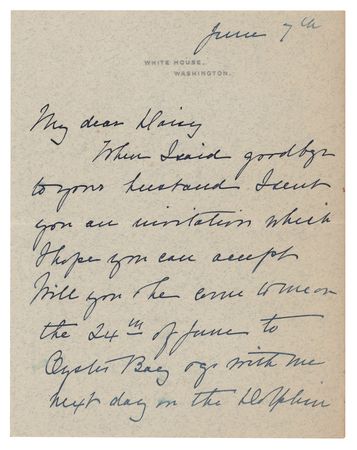 June 7th
WHITE HOUSE,
WASHINGTON.
My dear Daisy
When I said goodbye
to your husband I sent
you an invitation which
I hope you can accept
Will you & he come to me on
the 24th of June to
Oyster Bay & go with me
next day on the Dolphin